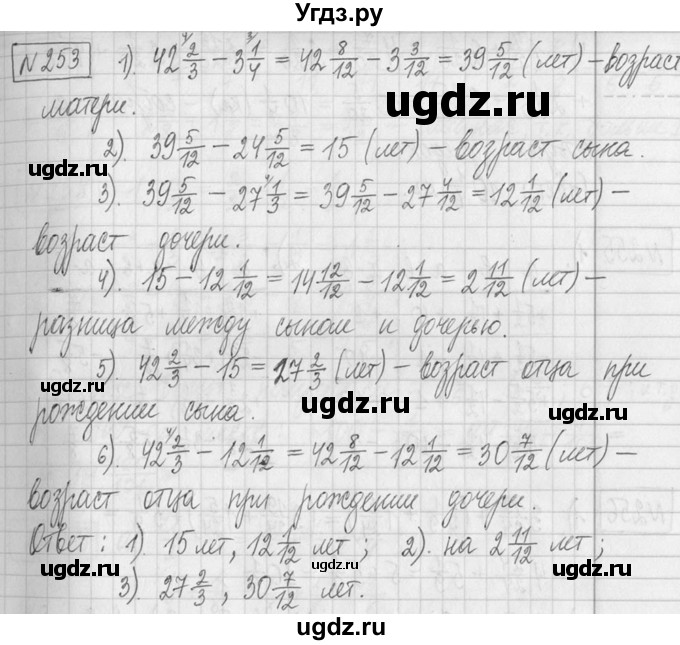 Угдз.ру
№253 1). 42 2/3 − 3 1/4 = 42 8/12 − 3 3/12 = 39 5/12 (лет) – возраст
матери.
ugdz.ru
ugdz.ru
2). 39 5/12 − 24 5/12 = 15 (лет) – возраст сына.
ugdz.ru
ugdz.ru
3). 39 5/12 − 27 1/3 = 39 5/12 − 27 4/12 = 12 1/12 (лет) –
возраст дочери.
ugdz.ru
4). 15 − 12 1/12 = 14 12/12 − 12 1/12 = 2 11/12 (лет) –
разница между сыном и дочерью.
ugdz.ru
5). 42 2/3 − 15 = 27 2/3 (лет) – возраст отца при
ugdz.ru
рождении сына.
ugdz.ru
ugdz.ru
6). 42 2/3 − 12 1/12 = 42 8/12 − 12 1/12 = 30 7/12 (лет) –
возраст отца при рождении дочери.
ugdz.ru
Ответ: 1). 15 лет, 12 1/12 лет; 2). на 2 11/12 лет;
ugdz.ru
ugdz.ru
3). 27 2/3, 30 7/12 лет.
ugdz.ru
ugdz.ru